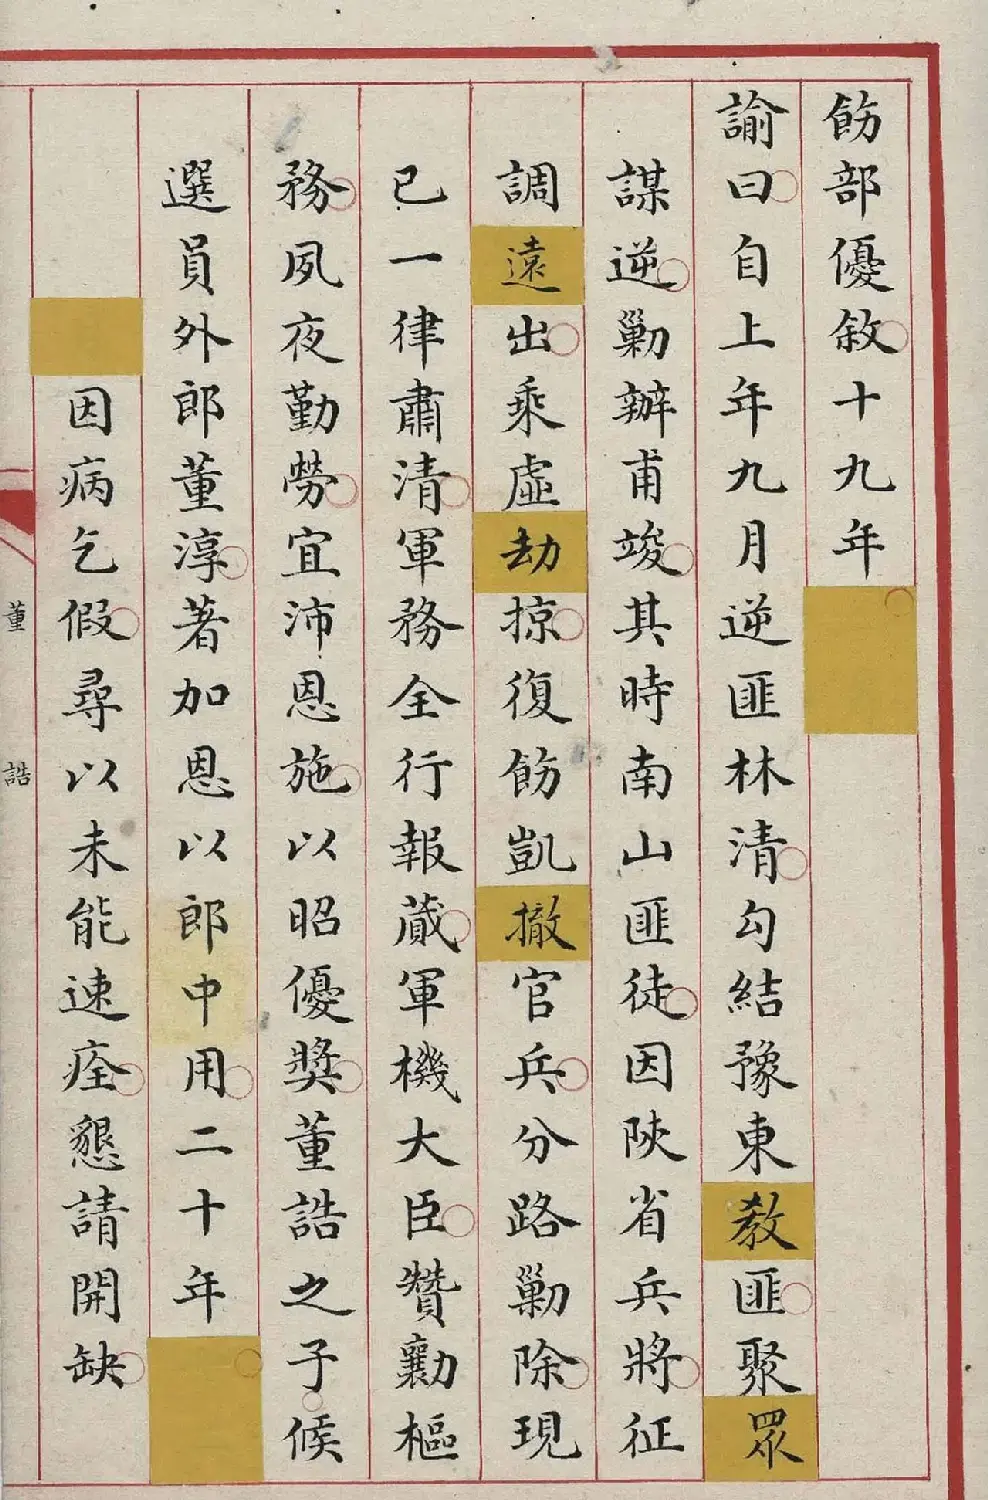 飭部優敘十九年
諭曰自上年九月逆匪林清勾結豫東教匪聚眾
謀逆勦辦甫竣其時南山匪徒因陝省兵將征
調遠出乘虛劫掠復飭凱撤官兵分路勦除現
已一律肅清軍務全行報蕆軍機大臣贊勷樞
務夙夜勤勞宜沛恩施以昭優獎董誥之子候
選員外郎董淳著加恩以郎中用二十年
因病乞假尋以未能速痊懇請開缺
董誥